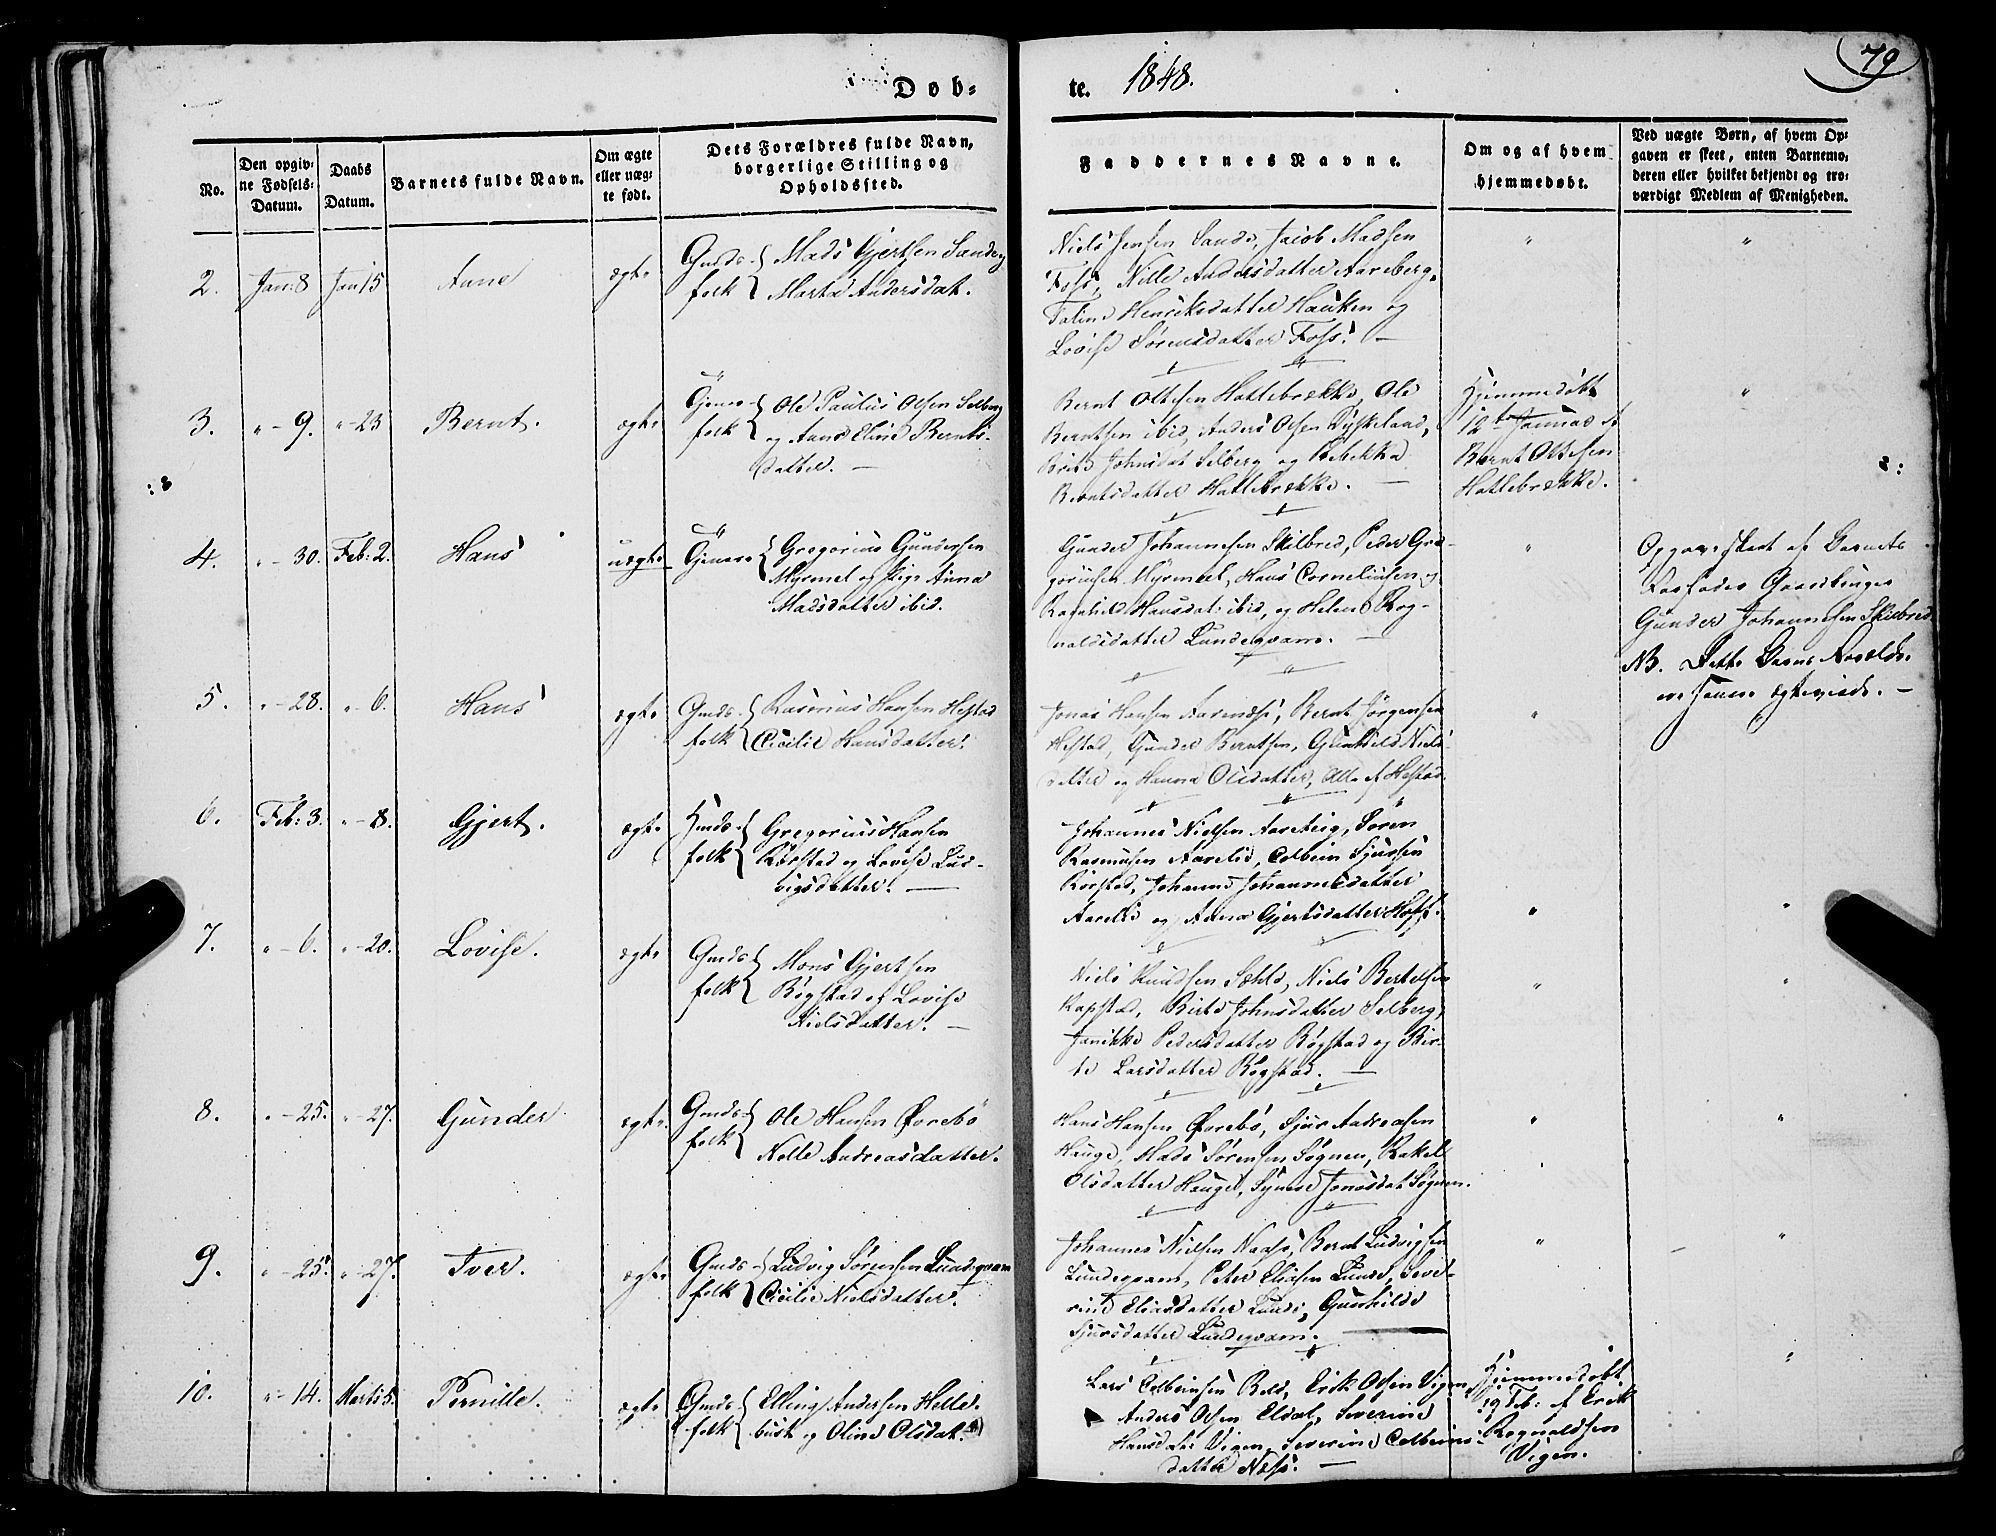 79
Døb-
te. 1848.
No.
Den opgiv-
ne Fødsels-
Datum.
Daabs
Datum.
Barnets fulde Navn.
Om ægte
eller uæg-
te født.
Dets Forældres fulde Navn,
borgerlige Stilling og
Opholdssted.
Faddernes Navne.
Om og af hvem
hjemmedøbt.
Ved uægte Børn, af hvem Op-
gaven er skeet, enten Barnemo-
deren eller hvilket bekjendt og tro-
værdigt Medlem af Menigheden.
2. Jan: 8 Jan 15 Anne ægte
Gmds- folk
Mads Gjertsen Sande og
Marta Andersdat.
Niels Jensen Sande, Jacob Madsen
Foss, Nille Andersdatter Aareberg,
Taline Henriksdatter Hauken og
Lovise Sørensdatter Foss. —
3. " - 9. " - 23 Bernt. ægte
folk
Ole Paulus Olsen Selberg
og Anne Eline Bernts-
datter. —
Bernt Ottesen Hattebrække, Ole
Berntsen ibid, Anders Olsen Kyskeland,
Brite Johnsdat Selberg og Rebekka
Berntsdatter Hattebrække. —
Hjemmedøbt
12te Januar af
Bernt Ottesen
Hattebrække.
4. " - 30. Feb: 2. Hans uægte
Gregorius Gundersen
Myrmel og Pige Anna
Madsdatter ibid.
Gunder Johannesen Skilbred, Peder Gre-
goriusen Myrmel, Hans Corneliusen og
Ragnhild Hansdat: ibid, og Helene Rog-
naldsdatter Lundeqvam. —
Opgave skeet af Barnets
Farfader Gaardbruger
Gunder Johannesen Skilbred
NB. Dette Barns Forældre
ere senere ægteviede. —
5. " - 28. " - 6. Hans ægte
Gmds- folk
Rasmus Hansen Hestad
Cicilie Hansdatter.
Jonas Hansen Aarnæs, Bernt Jørgensen
Hestad, Gunder Berntsen, Gunhild Niels-
datter og Hanna Olsdatter, Alle af Hestad.
6. Feb: 3. " - 8. Gjert. ægte
folk
Gregorius Hansen
Rørstad og Lovise Lud-
vigsdatter. —
Johannes Nielsen Aareteig, Søren
Rasmusen Aarelid, Colbein Sjursen
Rørstad, Johanne Johannesdatter
Aarelid og Anna Gjertsdatter Hoff.
7. " - 6. " - 20. Lovise. ægte
Gmds folk
Mons Gjertsen
Bøgstad og Lovise
Nielsdatter. —
Niels Knudsen Sæhle, Niels Bertelsen
Kapstad, Birte Johnsdatter Selberg,
Janikke Pedersdatter Bøgstad og Bir-
te Larsdatter Bøgstad. —
8. " - 25. " - 27. Gunder ægte.
Gmds- folk
Ole Hansen Ørebø
Nelle Andreasdatter.
Hans Hansen Ørebø, Sjur Andreasen
Hauge, Mads Sørensen Sognen, Rakel
Olsdatter Hauge, Synne Jonasdat Sognen.
9. " - 25. " - 27. Iver. ægte
Gmds- folk
Ludvig Sørensen Lundeqvam
Cicilie Nielsdatter.
Johannes Nielsen Naase, Bernt Ludvigsen
Lundeqvam, Peter Eliasen Lunde, Seve-
rine Eliasdatter Lunde, Gunhilde
Sjursdatter Lundeqvam. —
10. " - 14. Marts 5. Pernille. ægte
Gmds- folk
Elling Andersen Helle-
bust og Oline Olsdat.
Lars Colbeinsen Beld, Erik Olsen Vigen,
Anders Olsen Eldal, Severine
Hansdatter Vigen, Severine Colbeins-
datter Næss. —
Hjemmedøbt
19 Feb: af Erik
Rognaldsen
Vigen.